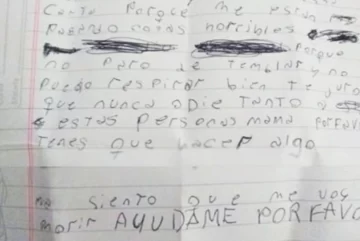 Carta Porque me están
Pasando cosas horribles
Porque
no Paro de temblar y no
Puedo respirar bien te juro
que nunca odie TanTo a
estas Personas mama PorFavor
Tenes que hacer algo
siento que me voy
morir AYUDAME POR FAVO